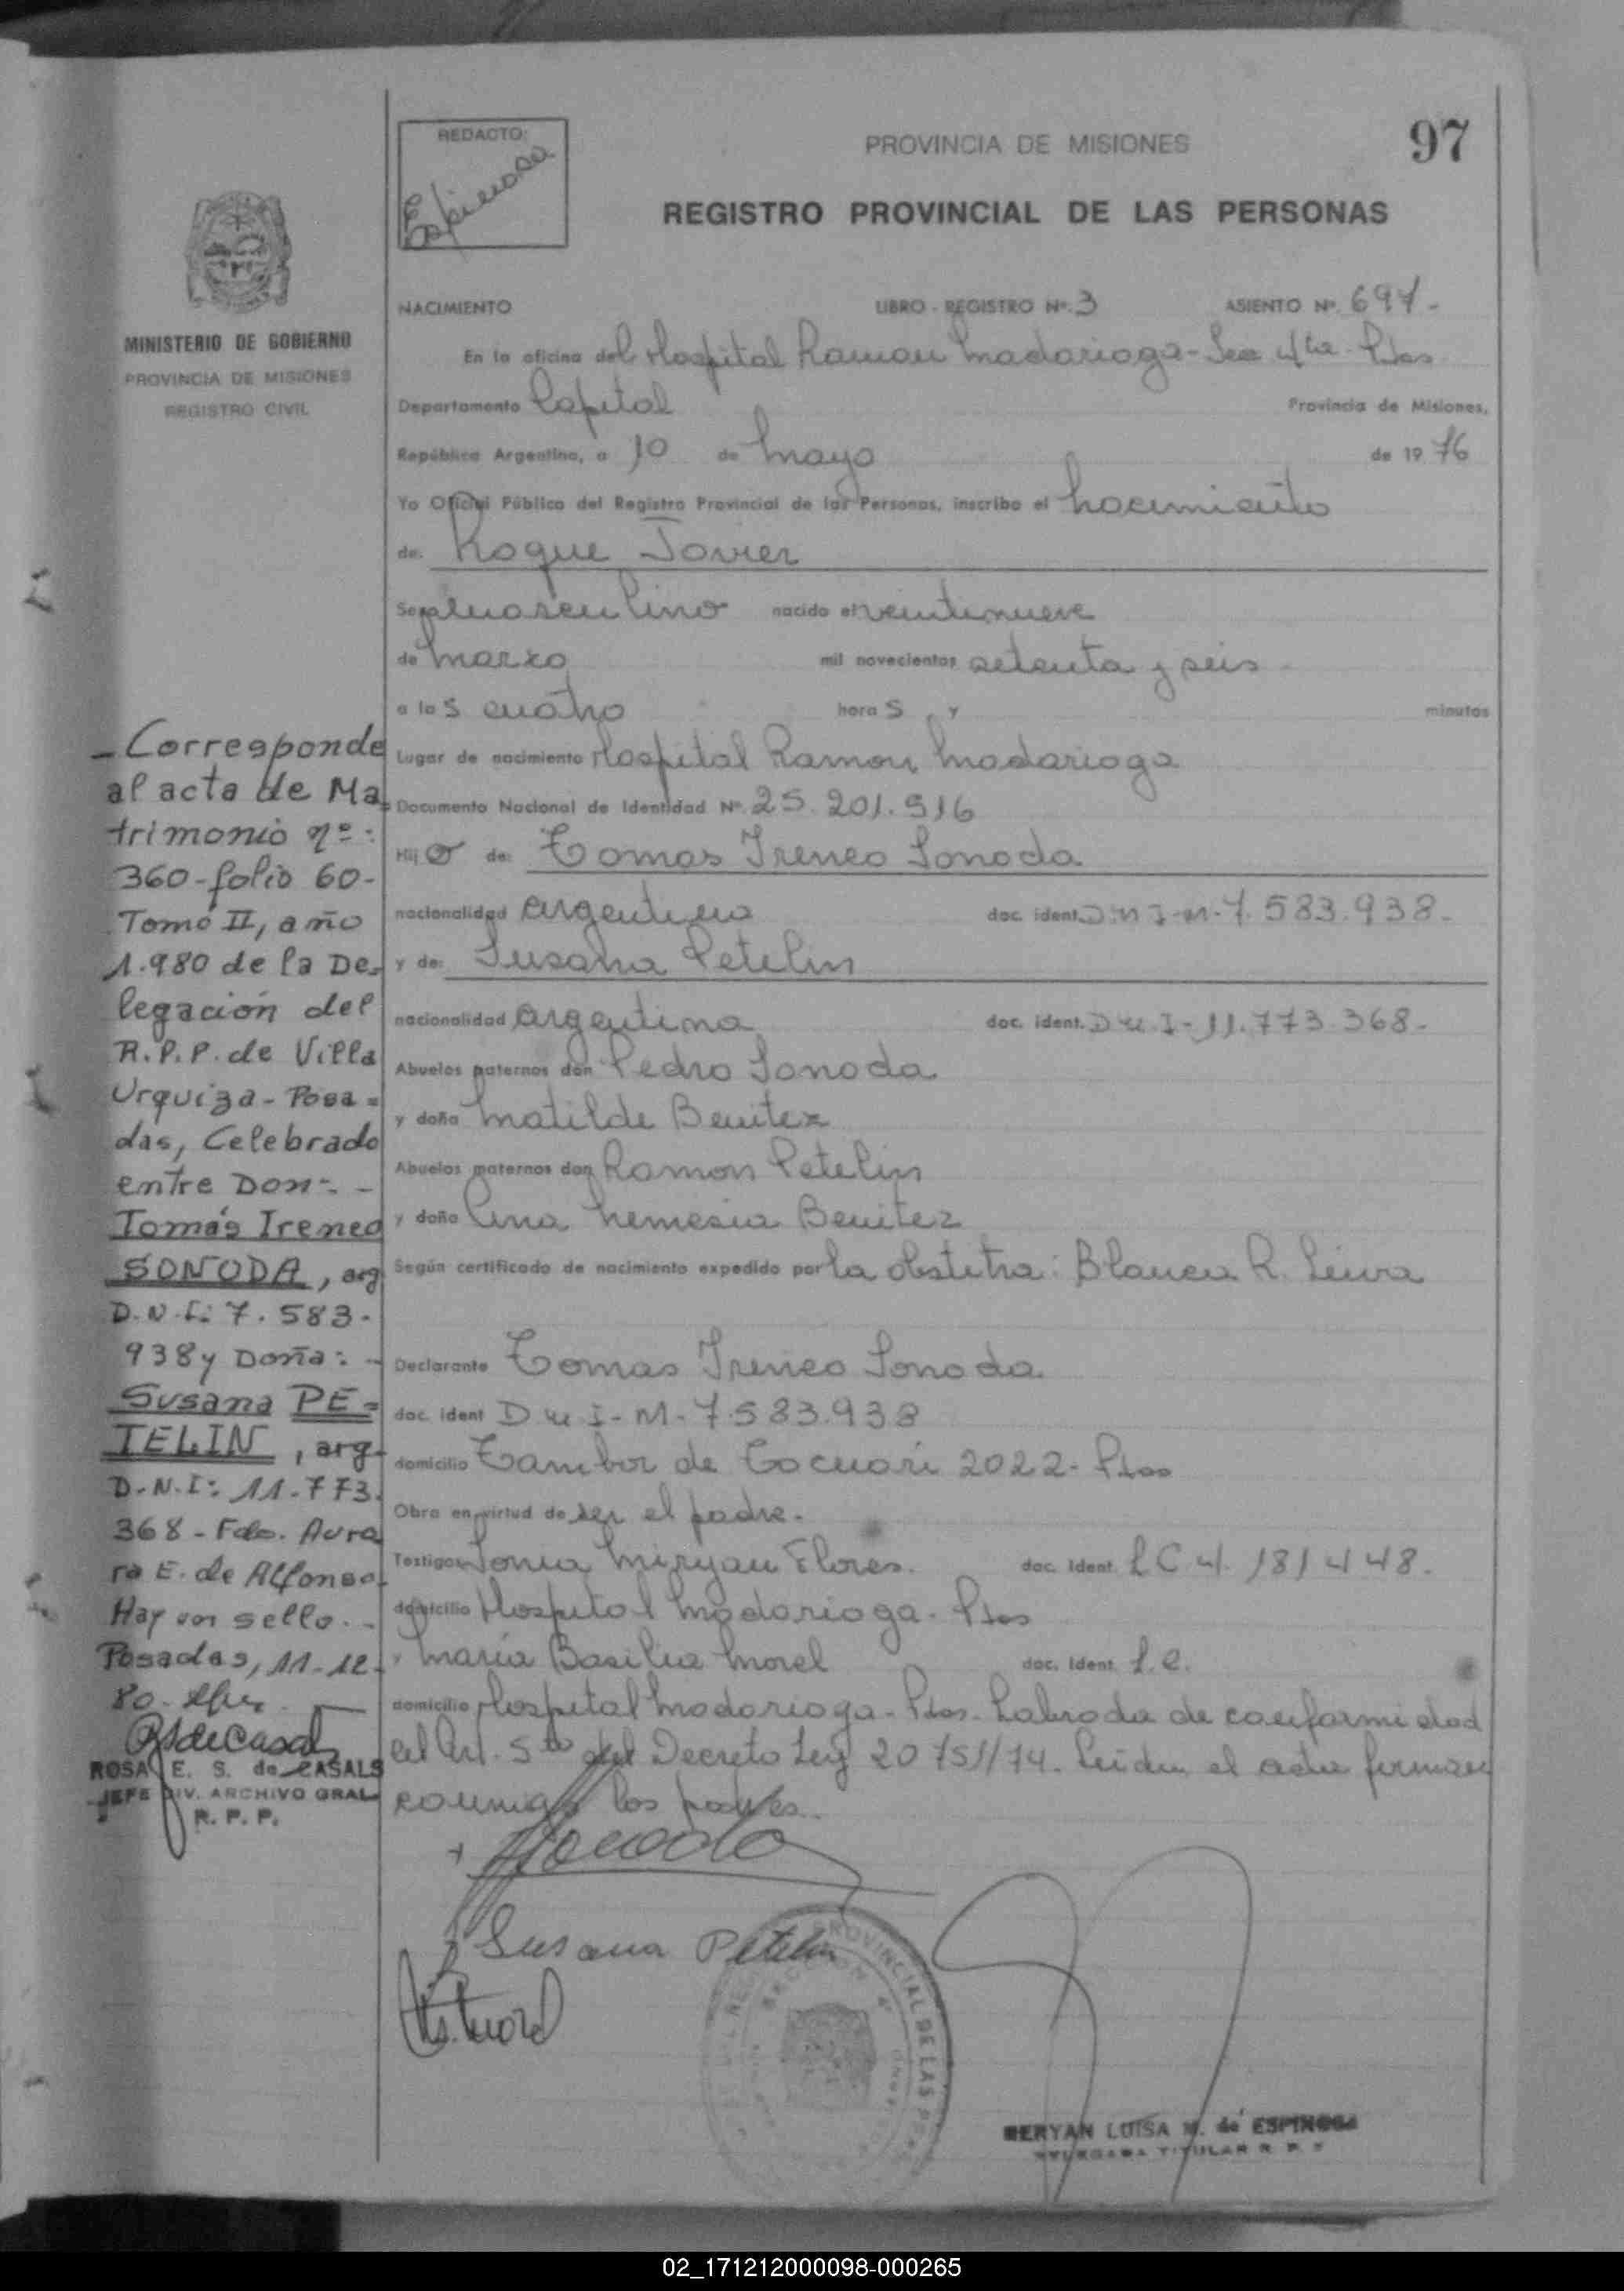 97
REDACTO:
Espinosa
PROVINCIA DE MISIONES
REGISTRO PROVINCIAL DE LAS PERSONAS
MINISTERIO DE GOBIERNO
PROVINCIA DE MISIONES
REGISTRO CIVIL
NACIMIENTO LIBRO - REGISTRO Nº. 3 ASIENTO Nº. 697-
En la oficina del Hospital Ramon Madariaga - Sec 4ta - Pdas
Departamento Capital Provincia de Misiones,
República Argentina, a 10 de Mayo de 1976
Yo Oficial Público del Registro Provincial de las Personas, inscribo el Nacimiento
de: Roque Javier
Sexo masculino nacido el veintinueve
de Marzo mil novecientos setenta y seis -
a las cuatro horas y minutos
Lugar de nacimiento Hospital Ramon Madariaga
Documento Nacional de Identidad Nº. 25.201.516
Hijo de: Tomas Ireneo Sonoda
nacionalidad argentino doc. ident. D N I - M - 7.583.938 -
y de: Susana Petelin
nacionalidad argentina doc. ident. D N. I - 11.773.368 -
Abuelos paternos don Pedro Sonoda
y doña Matilde Benitez
Abuelos maternos don Ramon Petelin
y doña Ana Nemesia Benitez
Según certificado de nacimiento expedido por la obstetra: Blanca R. Leiva
Declarante Tomas Ireneo Sonoda
doc. ident D N I - M - 7.583.938
domicilio Tambor de Tacuari 2022 - Pdas
Obra en virtud de ser el padre -
Testigos Sonia Miryan Flores. doc. ident. L C 4.181448.
domicilio Hospital Madariaga - Pdas
y Maria Basilia Morel doc. ident. L.C.
domicilio Hospital Madariaga - Pdas - Labrada de conformidad
al Art. 5to del Decreto Ley 20751/74. Leida el acta firman
conmigo los padres.
Sonoda
Susana Petelin
Morel
PROVINCIAL DE LAS
MERYAN LUISA M. de ESPINOSA
DELEGADA TITULAR R. P. P.
- Corresponde
al acta de Ma=
trimonio nº:
360-folio 60-
Tomo II, año
1.980 de la De-
legación del
R.P.P. de Villa
Urquiza - Posa=
das, Celebrado
entre Don-. -
Tomás Ireneo
SONODA, arg
D.N.I: 7.583-
938 y Doña: -
Susana PE=
TELIN, arg-
D.N.I: 11.773.
368 - Fdo. Auro
ra E. de Alfonso-
Hay un sello. -
Posadas, 11-12-
80-
ROSA E. S. de CASALS
JEFE DIV. ARCHIVO GRAL
R. P. P.
02_171212000098-000265